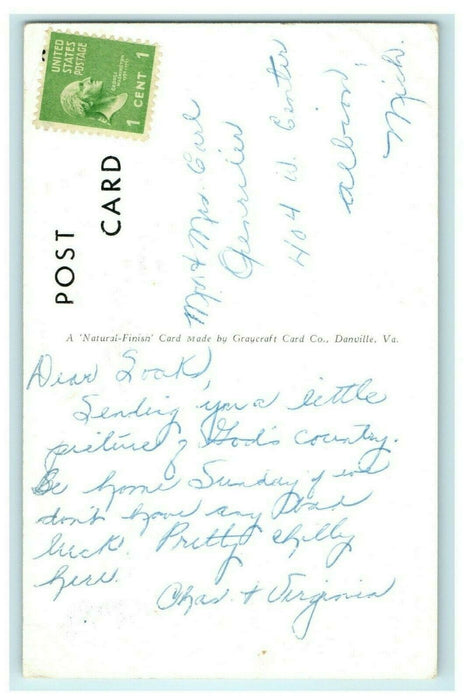 UNITED
STATES
POSTAGE
1 CENT 1
POST
CARD
Mr & Mrs. Carl
404 W. Center
Albion,
Mich.
A 'Natural-Finish' Card made by Graycraft Card Co., Danville, Va.
Dear
Sending you a little
picture of God's country.
Be home Sunday if we
don't have any bad
luck. Pretty chilly
here.
Chas. & Virginia